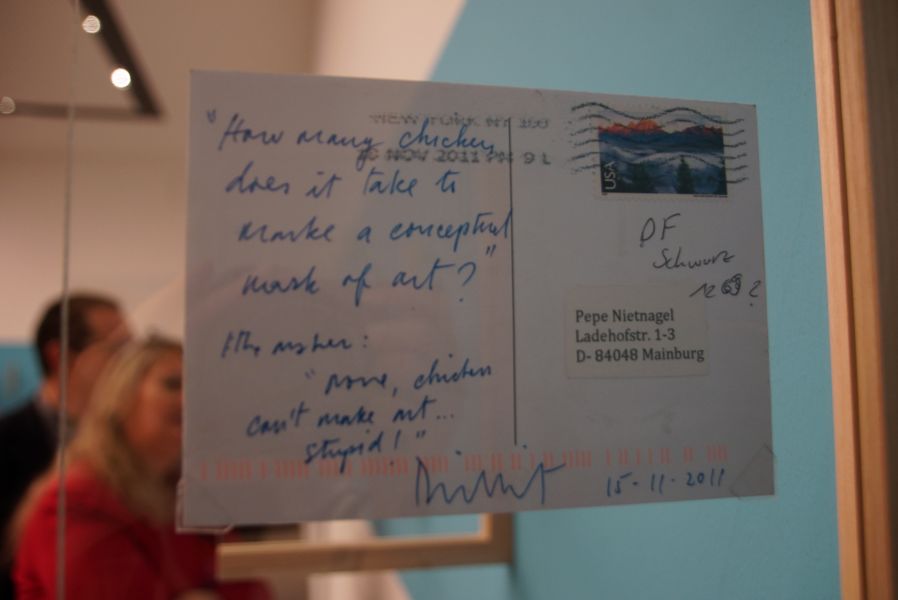 "How many chickens
does it take to
make a conceptual
work of art?"
The answer:
"none, chicken
can't make art...
stupid!"
NEW YORK NY 100
16 NOV 2011 PM 9 L
USA
DF
Schwarz
12
?
Pepe Nietnagel
Ladehofstr. 1-3
D- 84048 Mainburg
15-11-2011